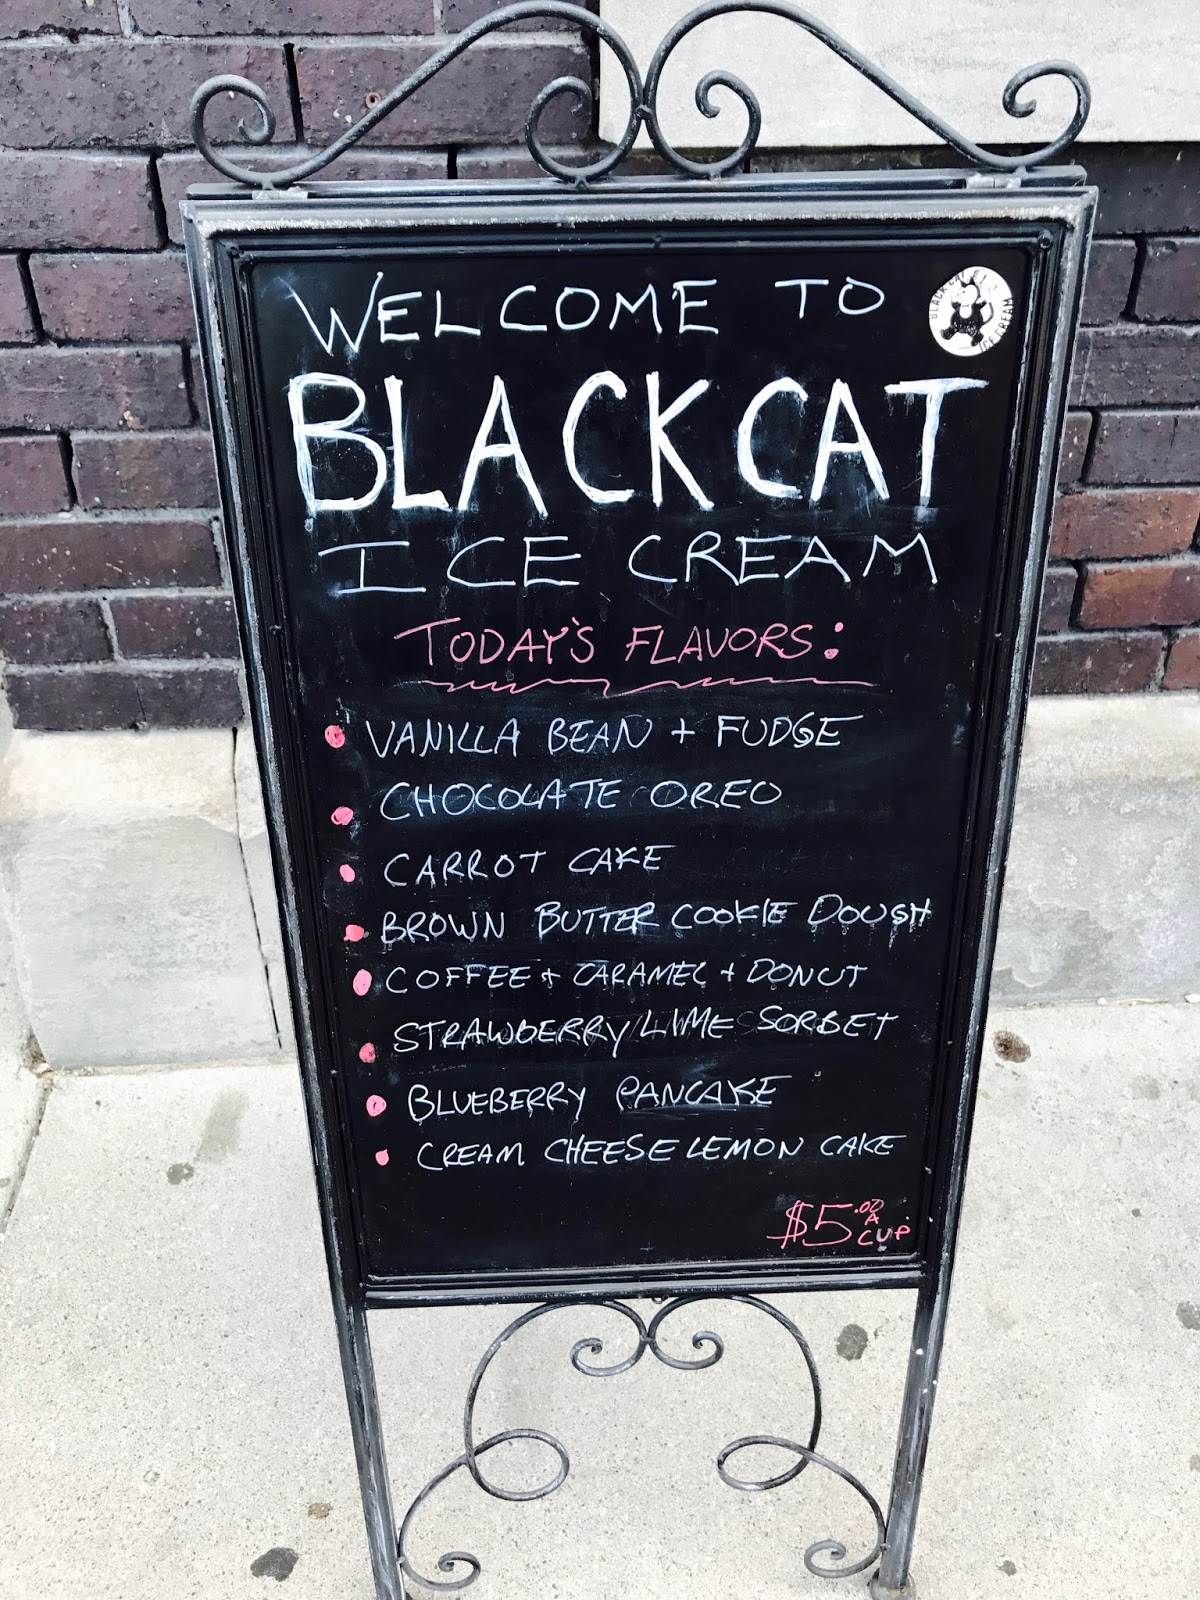 WELCOME TO
BLACK CAT
ICE CREAM
BLACK CAT
ICE CREAM
TODAY'S FLAVORS:
VANILLA BEAN + FUDGE
CHOCOLATE OREO
CARROT CAKE
BROWN BUTTER COOKIE DOUGH
COFFEE + CARAMEL + DONUT
STRAWBERRY/LIME SORBET
BLUEBERRY PANCAKE
CREAM CHEESE LEMON CAKE
$5.00 A CUP